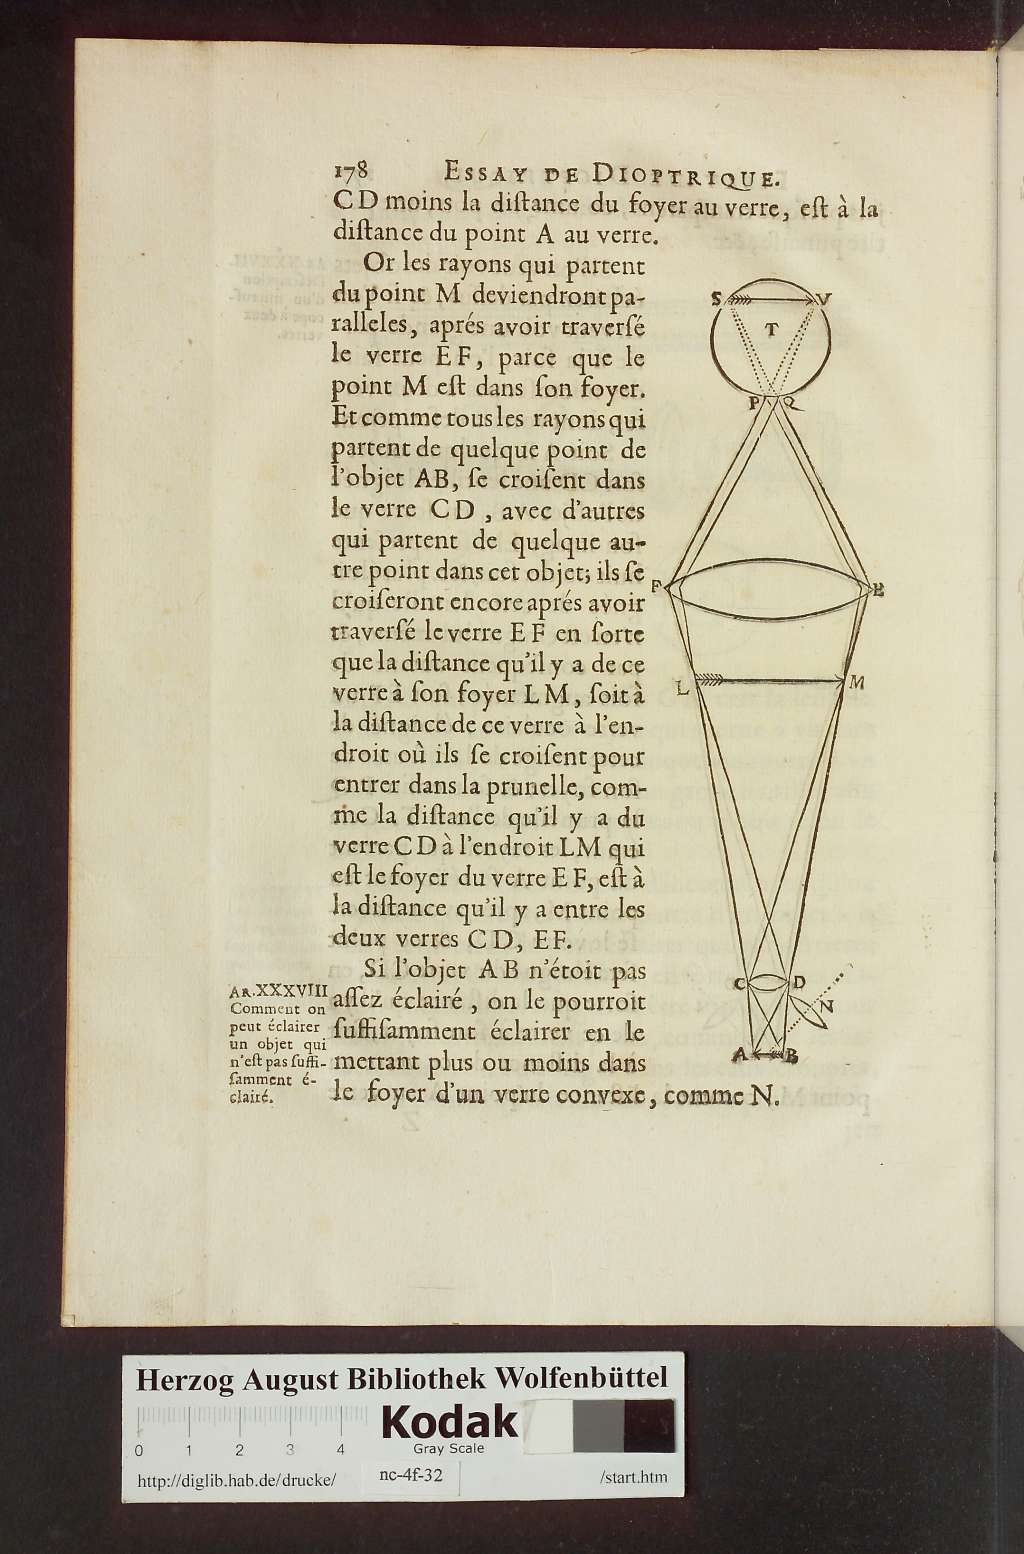 178 ESSAY DE DIOPTRIQUE.
CD moins la diſtance du foyer au verre, eſt à la
diſtance du point A au verre.
Or les rayons qui partent
du point M deviendront pa-
ralleles, aprés avoir traverſé
le verre EF, parce que le
point M eſt dans ſon foyer.
Et comme tous les rayons qui
partent de quelque point de
l'objet AB, ſe croiſent dans
le verre CD, avec d'autres
qui partent de quelque au-
tre point dans cet objet; ils ſe
croiſeront encore aprés avoir
traverſé le verre EF en ſorte
que la diſtance qu'il y a de ce
verre à ſon foyer LM, ſoit à
la diſtance de ce verre à l'en-
droit où ils ſe croiſent pour
entrer dans la prunelle, com-
me la diſtance qu'il y a du
verre CD à l'endroit LM qui
eſt le foyer du verre EF, eſt à
la diſtance qu'il y a entre les
deux verres CD, EF.
Si l'objet AB n'étoit pas
aſſez éclairé, on le pourroit
ſuffiſamment éclairer en le
mettant plus ou moins dans
le foyer d'un verre convexe, comme N.
AR.XXXVIII
Comment on
peut éclairer
un objet qui
n'eſt pas ſuffi-
ſamment é-
clairé.
S V
T
P Q
F E
L M
C D
N
A B
Herzog August Bibliothek Wolfenbüttel
Kodak
Gray Scale
0 1 2 3 4
http://diglib.hab.de/drucke/ nc-4f-32 /start.htm